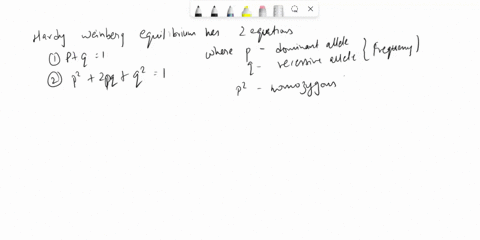 Hardy Weinberg equilibrium has 2 equations
① P+q = 1 where p - dominant allele
q - recessive allele } (frequency)
② p² + 2pq + q² = 1
p² - homozygous